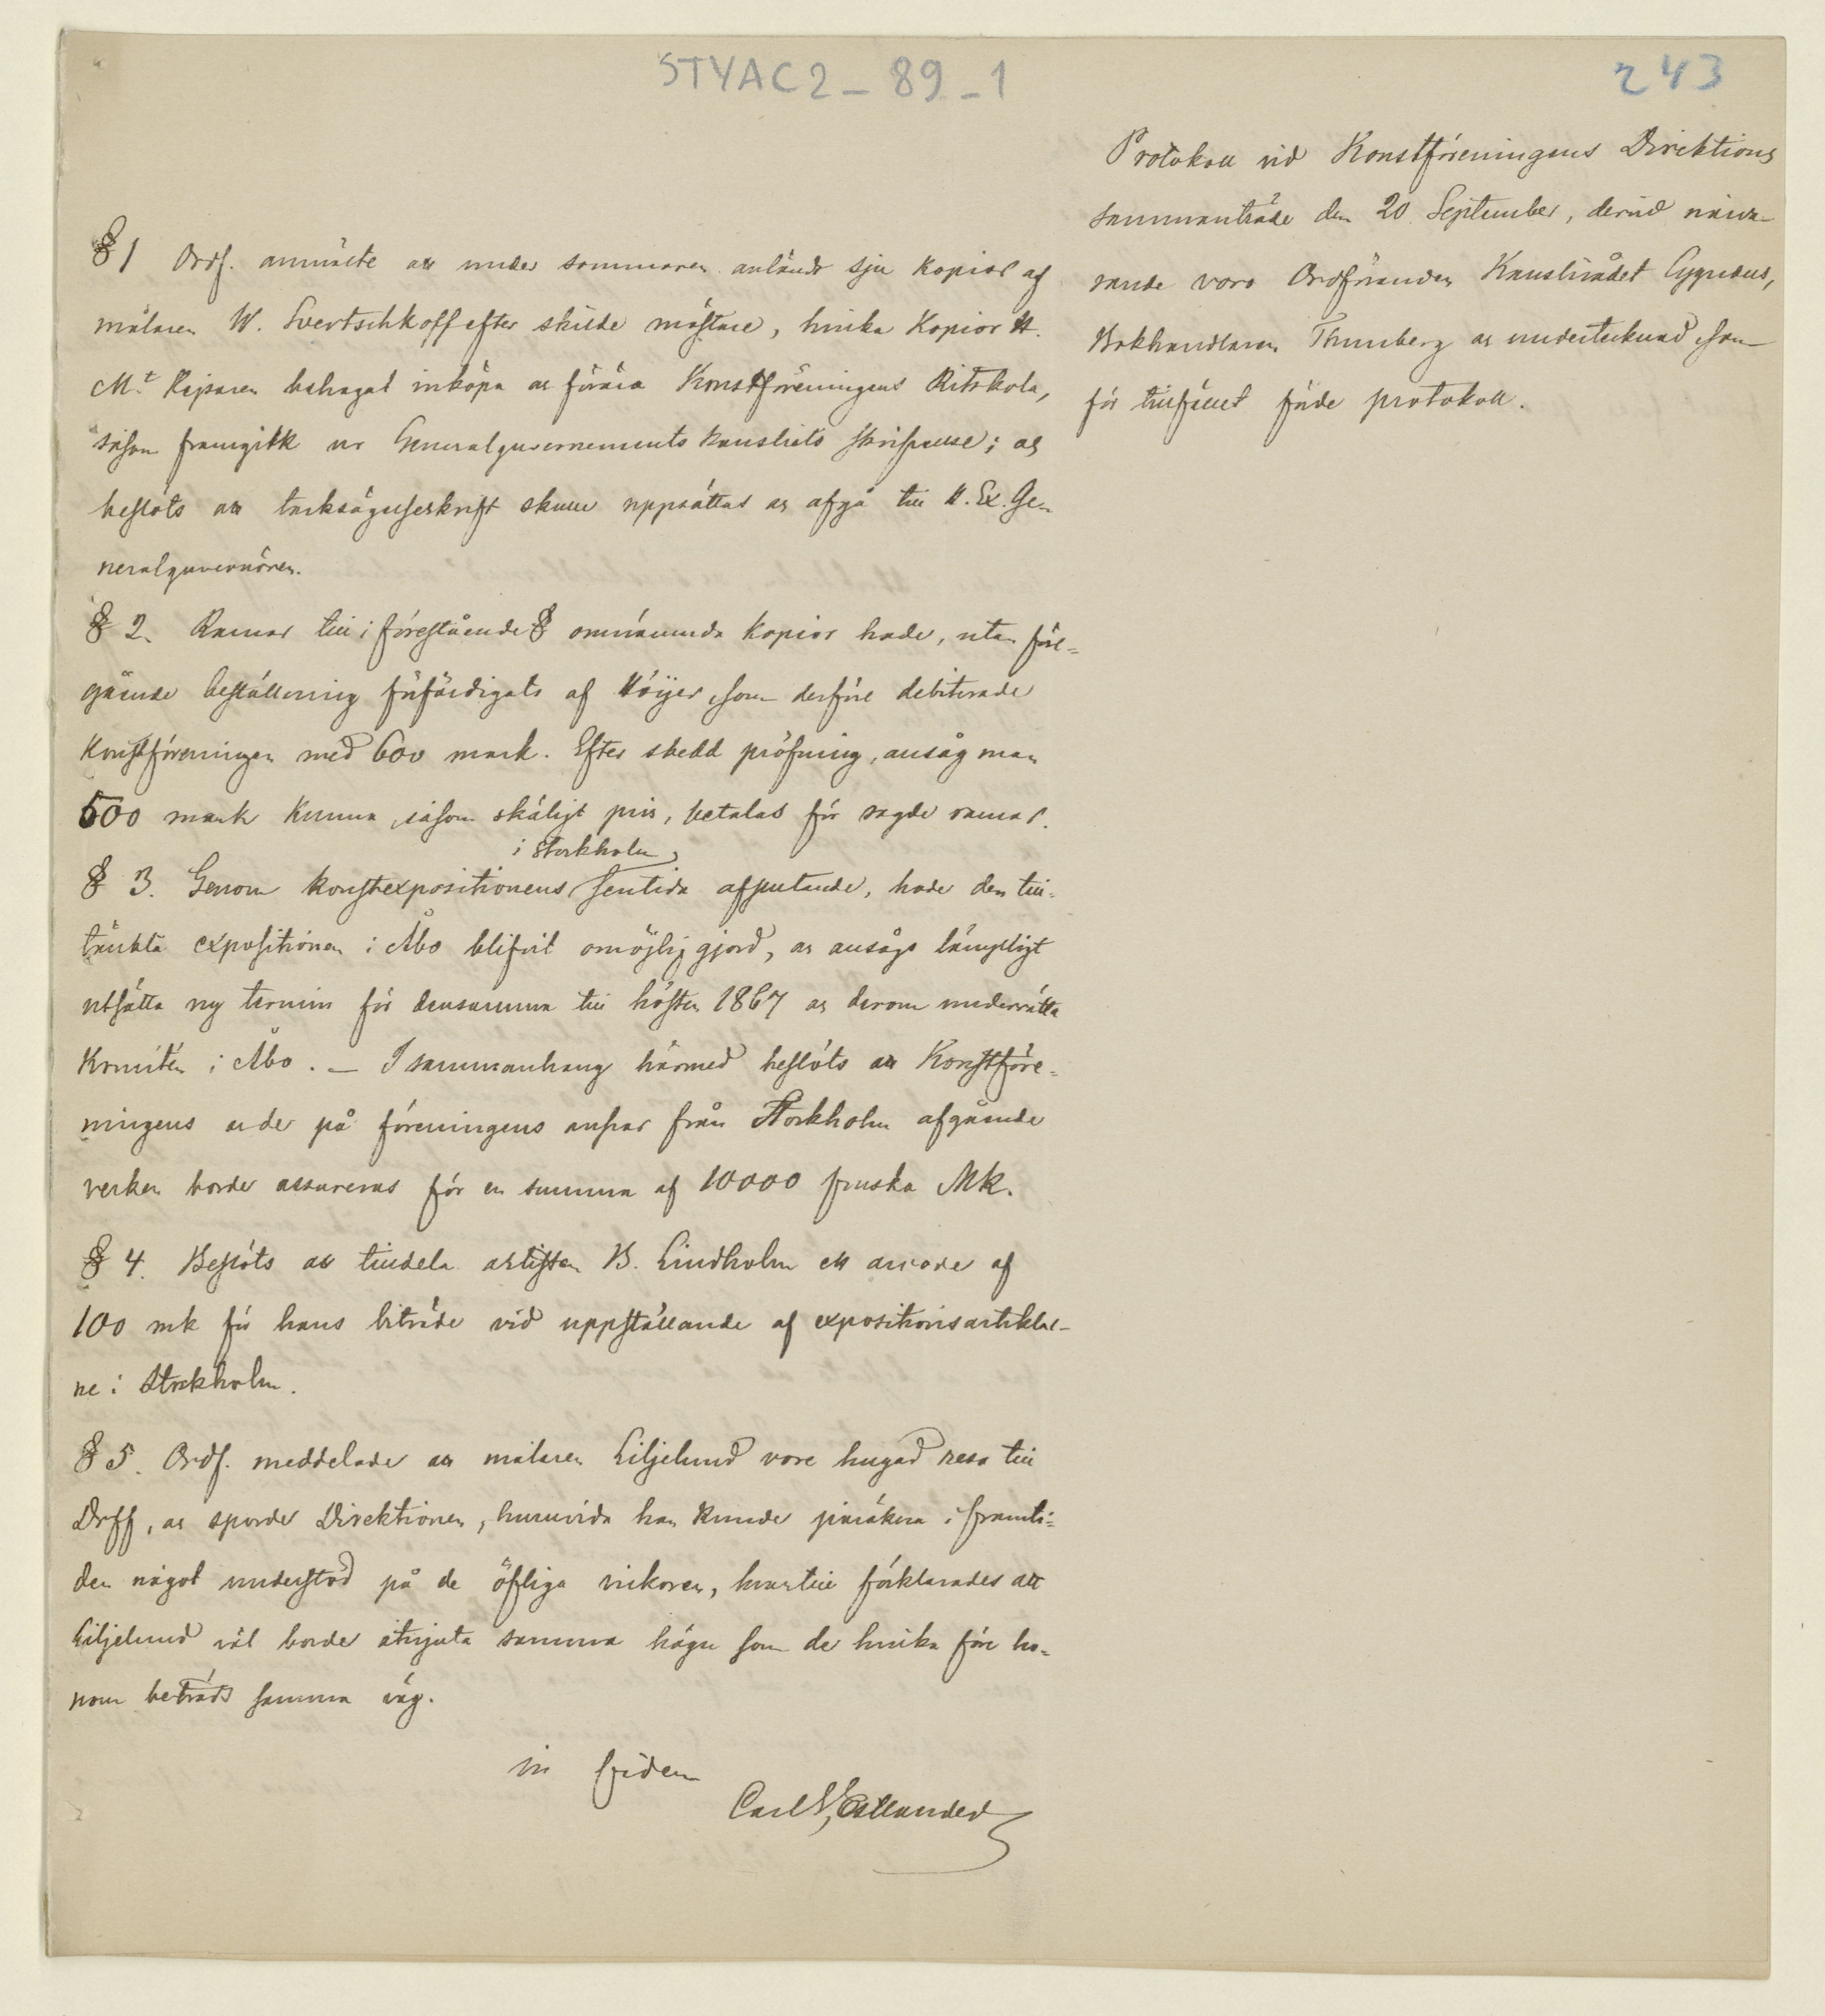 STYAC2_89_1
243
Protokoll vid Konstföreningens Direktions
sammanträde den 20 September, dervid närva-
rande voro Ordföranden Kanslirådet Cygnæus,
Bokhandlaren Thunberg och undertecknad som
för tillfället förde protokoll.
§ 1 Ordf. anmälte att under sommaren anländt sju kopior af
målaren W. Svertschkoff efter skilde mästare, hvilka kopior H.
M:t Kejsaren behagat inköpa och förära Konstföreningens Ritskola,
såsom framgick ur Generalguvernements kansliets skrifvelse; och
beslöts att tacksägelseskrift skulle uppsättas och afgå till H. Ex. Ge-
neralguvernören.
§ 2. Ramar till i förestående § omnämnda kopior hade, utan före-
gående beställning förfärdigats af Höijer som derföre debiterade
Konstföreningen med 600 mark. Efter skedd pröfning, ansåg man
500 mark kunna, såsom skäligt pris, betalas för sagde ramar.
i Stockholm
§ 3. Genom konstexpositionens sentida afslutande, hade den till-
tänkta expositionen i Åbo blifvit omöjliggjord, och ansågs lämpligt
utsätta ny termin för densamma till hösten 1867 och derom underrätta
Komitén i Åbo. – I sammanhang härmed beslöts att Konstföre-
ningens och de på föreningens ansvar från Stockholm afgående
verken borde assureras för en summa af 10000 finska Mk.
§ 4. Beslöts att tilldela artisten B. Lindholm ett arvode af
100 mk för hans biträde vid uppställande af expositionsartiklar-
ne i Stockholm.
§ 5. Ordf. meddelade att målaren Liljelund vore hugad resa till
Drff, och sporde Direktionen, huruvida han kunde påräkna i framti-
den något understöd på de öfliga vilkoren, hvartill förklarades att
Liljelund väl borde åtnjuta samma hägn som de hvilka före ho-
nom beträdt samma väg.
in fidem
Carl G. Estlander